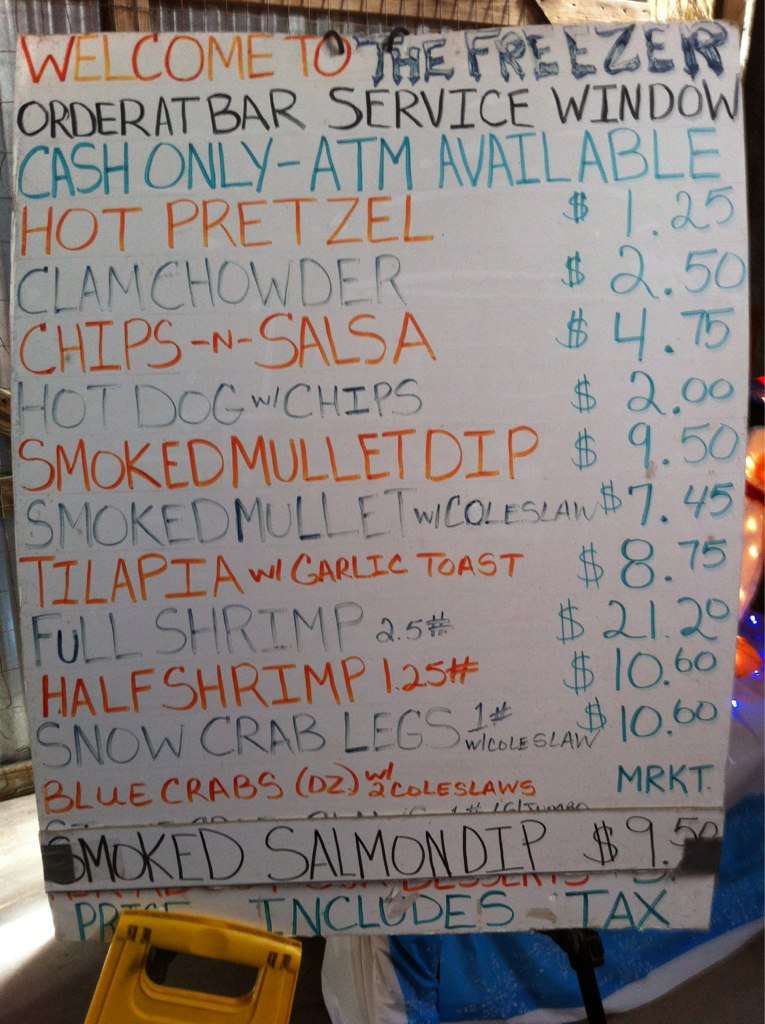 WELCOME TO THE FREEZER
ORDER AT BAR SERVICE WINDOW
CASH ONLY - ATM AVAILABLE
HOT PRETZEL $1.25
CLAM CHOWDER $2.50
CHIPS-N-SALSA $4.75
HOT DOG W/ CHIPS $2.00
SMOKED MULLET DIP $9.50
SMOKED MULLET W/COLESLAW $7.45
TILAPIA W/ GARLIC TOAST $8.75
FULL SHRIMP 2.5# $21.20
HALF SHRIMP 1.25# $10.60
SNOW CRAB LEGS 1# W/COLESLAW $10.60
BLUE CRABS (DZ.) W/ 2 COLESLAWS MRKT.
SMOKED SALMON DIP $9.50
PRICE INCLUDES TAX